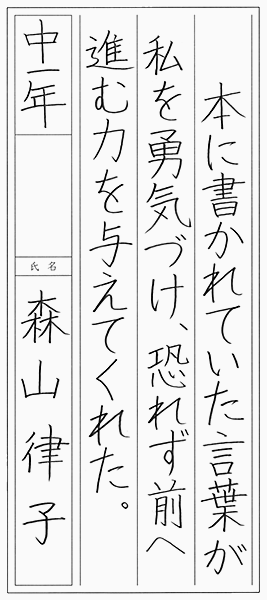 本に書かれていた言葉が
私を勇気づけ、恐れず前へ
進む力を与えてくれた。
中一年
氏名
森山律子